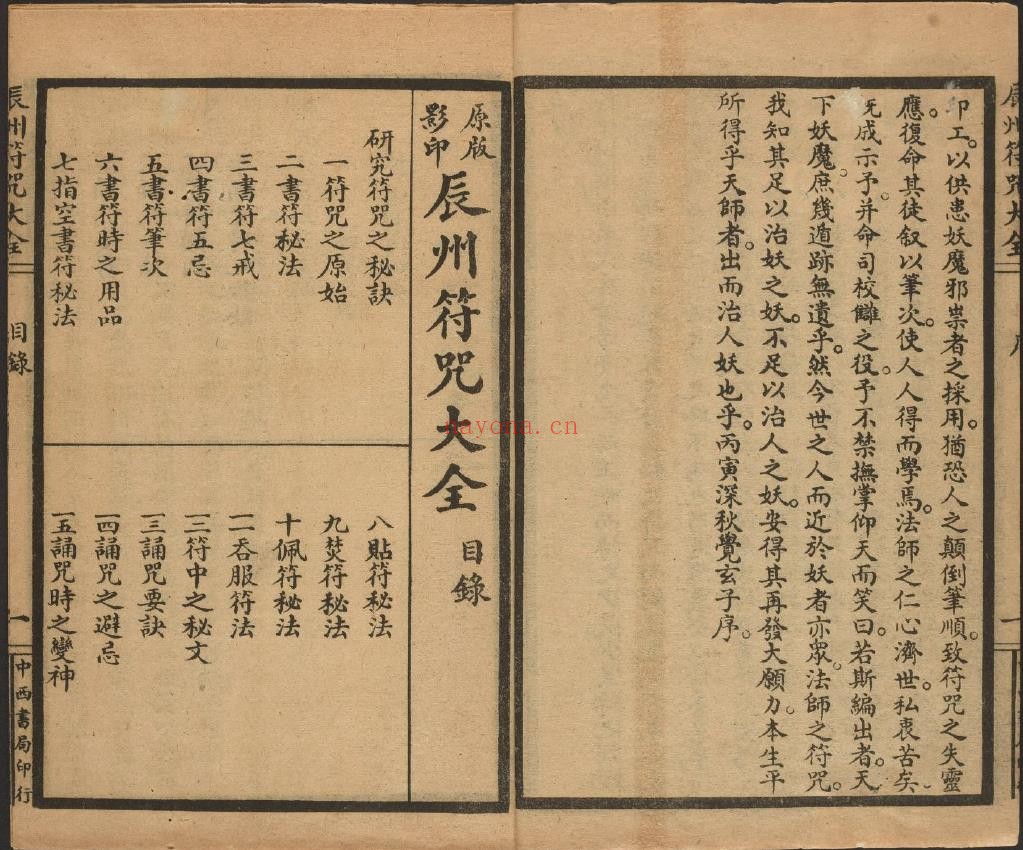 印工。以供患妖魔邪祟者之採用。猶恐人之顛倒筆順。致符咒之失靈
應。復命其徒叙以筆次。使人人得而學焉。法師之仁心濟世。私衷苦矣。
既成示予。并命司校讎之役。予不禁撫掌仰天而笑曰。若斯編出者。天
下妖魔。庶幾遁跡無遺乎。然今世之人而近於妖者亦眾。法師之符咒。
我知其足以治妖之妖。不足以治人之妖。安得其再發大願力。本生平
所得乎天師者。出而治人妖也乎。丙寅深秋覺玄子序。
辰州符咒大全
原版
影印
辰州符咒大全 目錄
研究符咒之秘訣
一符咒之原始
二書符秘法
三書符七戒
四書符五忌
五書符筆次
六書符時之用品
七指空書符秘法
八貼符秘法
九焚符秘法
十佩符秘法
一一吞服符法
一二符中之秘文
一三誦咒要訣
一四誦咒之避忌
一五誦咒時之變神
辰州符咒大全
目錄
一
中西書局印行
nayona.cn